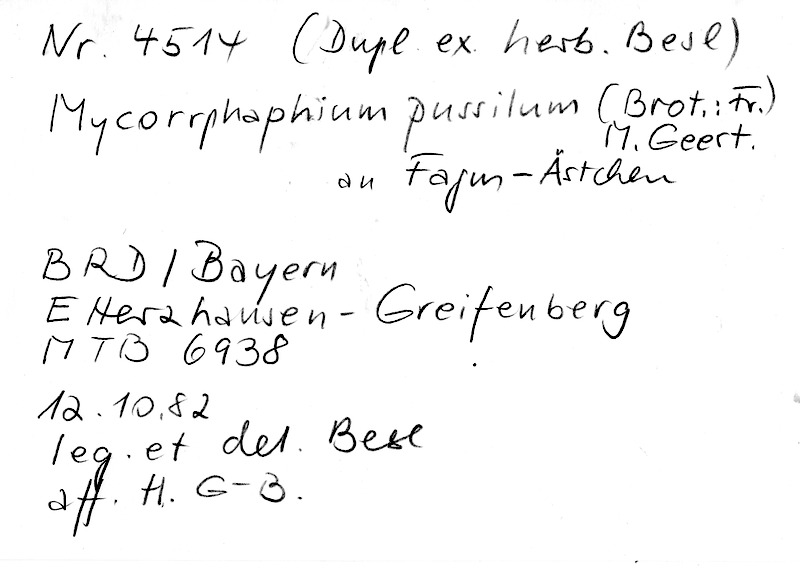 Nr. 4514 (Dupl ex herb. Besl)
Mycorrphaphium pussilum (Brot.: Fr.)
M. Geert.
an Fagus-Ästchen
BRD / Bayern
Etterzhausen - Greifenberg
MTB 6938
12.10.82
leg. et det. Besl
aff. H. G-B.